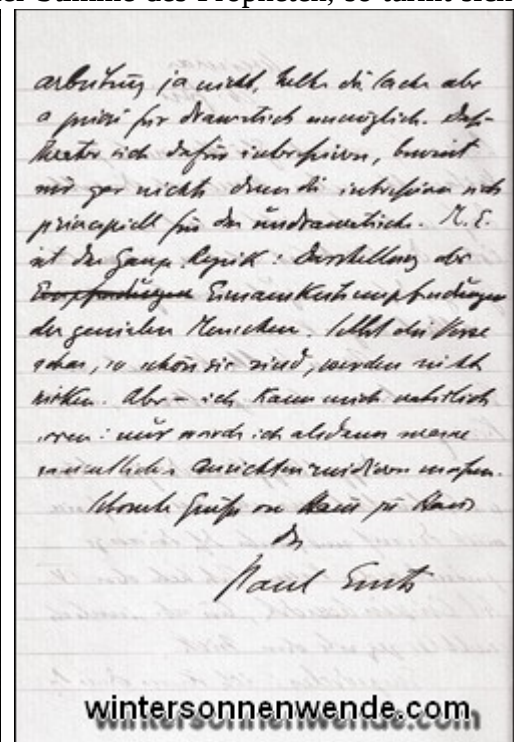 der Stimme des Propheten, so türmt sich
arbeitung ja nicht, halte die Sache aber
a priori für dramatisch unmöglich. Daß
Theater sich dafür interessieren, beweist
mir gar nichts denn die interessieren sich
principiell für das undramatische. M. E.
ist das Ganze Lyrik: Darstellung der
Empfindungen Einsamkeitsempfindungen
des genialen Menschen. Selbst die Verse
, so schön sie sind, werden nicht
wirken. Aber – ich kann mich natürlich
irren: nur würde ich alsdann meine
Ansichten revidieren müssen.
Grüße von Haus zu Haus
Ihr
Paul Ernst
wintersonnenwende.com